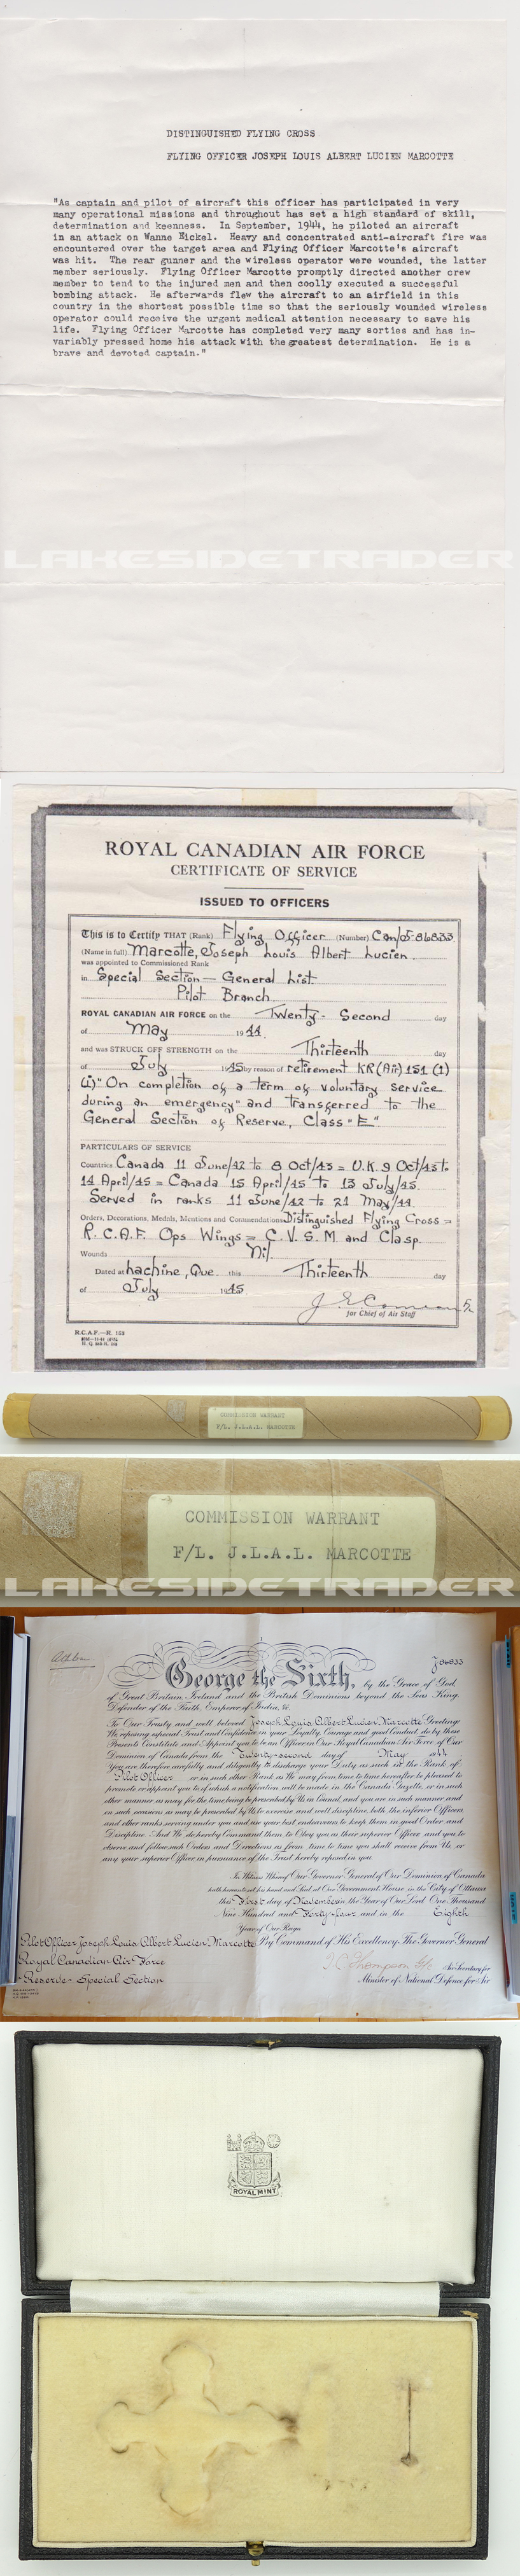 DISTINGUISHED FLYING CROSS
FLYING OFFICER JOSEPH LOUIS ALBERT LUCIEN MARCOTTE
"As captain and pilot of aircraft this officer has participated in very
many operational missions and throughout has set a high standard of skill,
determination and keenness. In September, 1944, he piloted an aircraft
in an attack on Wanne Eickel. Heavy and concentrated anti-aircraft fire was
encountered over the target area and Flying Officer Marcotte's aircraft
was hit. The rear gunner and the wireless operator were wounded, the latter
member seriously. Flying Officer Marcotte promptly directed another crew
member to tend to the injured men and then coolly executed a successful
bombing attack. He afterwards flew the aircraft to an airfield in this
country in the shortest possible time so that the seriously wounded wireless
operator could receive the urgent medical attention necessary to save his
life. Flying Officer Marcotte has completed very many sorties and has in-
variably pressed home his attack with the greatest determination. He is a
brave and devoted captain."
LAKESIDETRADER
ROYAL CANADIAN AIR FORCE
CERTIFICATE OF SERVICE
ISSUED TO OFFICERS
This is to Certify THAT (Rank) Flying Officer (Number) Can/J-86833
(Name in full) Marcotte, Joseph Louis Albert Lucien
was appointed to Commissioned Rank
in Special Section - General List.
Pilot Branch
ROYAL CANADIAN AIR FORCE on the Twenty-Second day
of May 1944
and was STRUCK OFF STRENGTH on the Thirteenth day
of July 1945 by reason of retirement KR(Air) 151 (1)
(i) "On completion of a term of voluntary service
during an emergency" and transferred to the
General Section of Reserve, Class "E"
PARTICULARS OF SERVICE
Countries Canada 11 June/42 to 8 Oct/43 = U.K. 9 Oct/43 to
14 April/45 = Canada 15 April/45 to 13 July/45.
Served in ranks 11 June/42 to 21 May/44
Orders, Decorations, Medals, Mentions and Commendations Distinguished Flying Cross =
R.C.A.F. Ops Wings = C.V.S.M. and Clasp.
Wounds Nil.
Dated at Lachine, Que. this Thirteenth day
of July 1945
for Chief of Air Staff
R.C.A.F.—R. 153
COMMISSION WARRANT
F/L. J.L.A.L. MARCOTTE
COMMISSION WARRANT
F/L. J.L.A.L. MARCOTTE
LAKESIDETRADER
J86833
George the Sixth, by the Grace of God,
of Great Britain, Ireland and the British Dominions beyond the Seas King,
Defender of the Faith, Emperor of India, &c.
To Our Trusty and well beloved Joseph Louis Albert Lucien Marcotte Greeting
We reposing especial Trust and Confidence in your Loyalty Courage and good Conduct, do by these
Presents Constitute and Appoint you to be an Officer in Our Royal Canadian Air Force of Our
Dominion of Canada from the Twenty-second day of May 1944
You are therefore carefully and diligently to discharge your Duty as such in the Rank of
Pilot Officer or in such other Rank as We may from time to time hereafter be pleased to
promote or appoint you to of which a notification will be made in the Canada Gazette, or in such
other manner as may for the time being be prescribed by Us in Council, and you are in such manner and
on such occasions as may be prescribed by Us to exercise and well discipline both the inferior Officers
and other ranks serving under you and use your best endeavours to keep them in good Order and
Discipline. And We do hereby Command them to Obey you as their superior Officer and you to
observe and follow such Orders and Directions as from time to time you shall receive from Us, or
any your superior Officer in pursuance of the Trust hereby reposed in you.
In Witness Whereof Our Governor General of Our Dominion of Canada
hath hereunto set his hand and Seal at Our Government House in the City of Ottawa
this First day of November in the Year of Our Lord One Thousand
Nine Hundred and Forty-four and in the Eighth
Year of Our Reign.
Pilot Officer Joseph Louis Albert Lucien Marcotte By Command of His Excellency The Governor General
Royal Canadian Air Force
Reserve - Special Section
Minister of National Defence for Air
ROYAL MINT